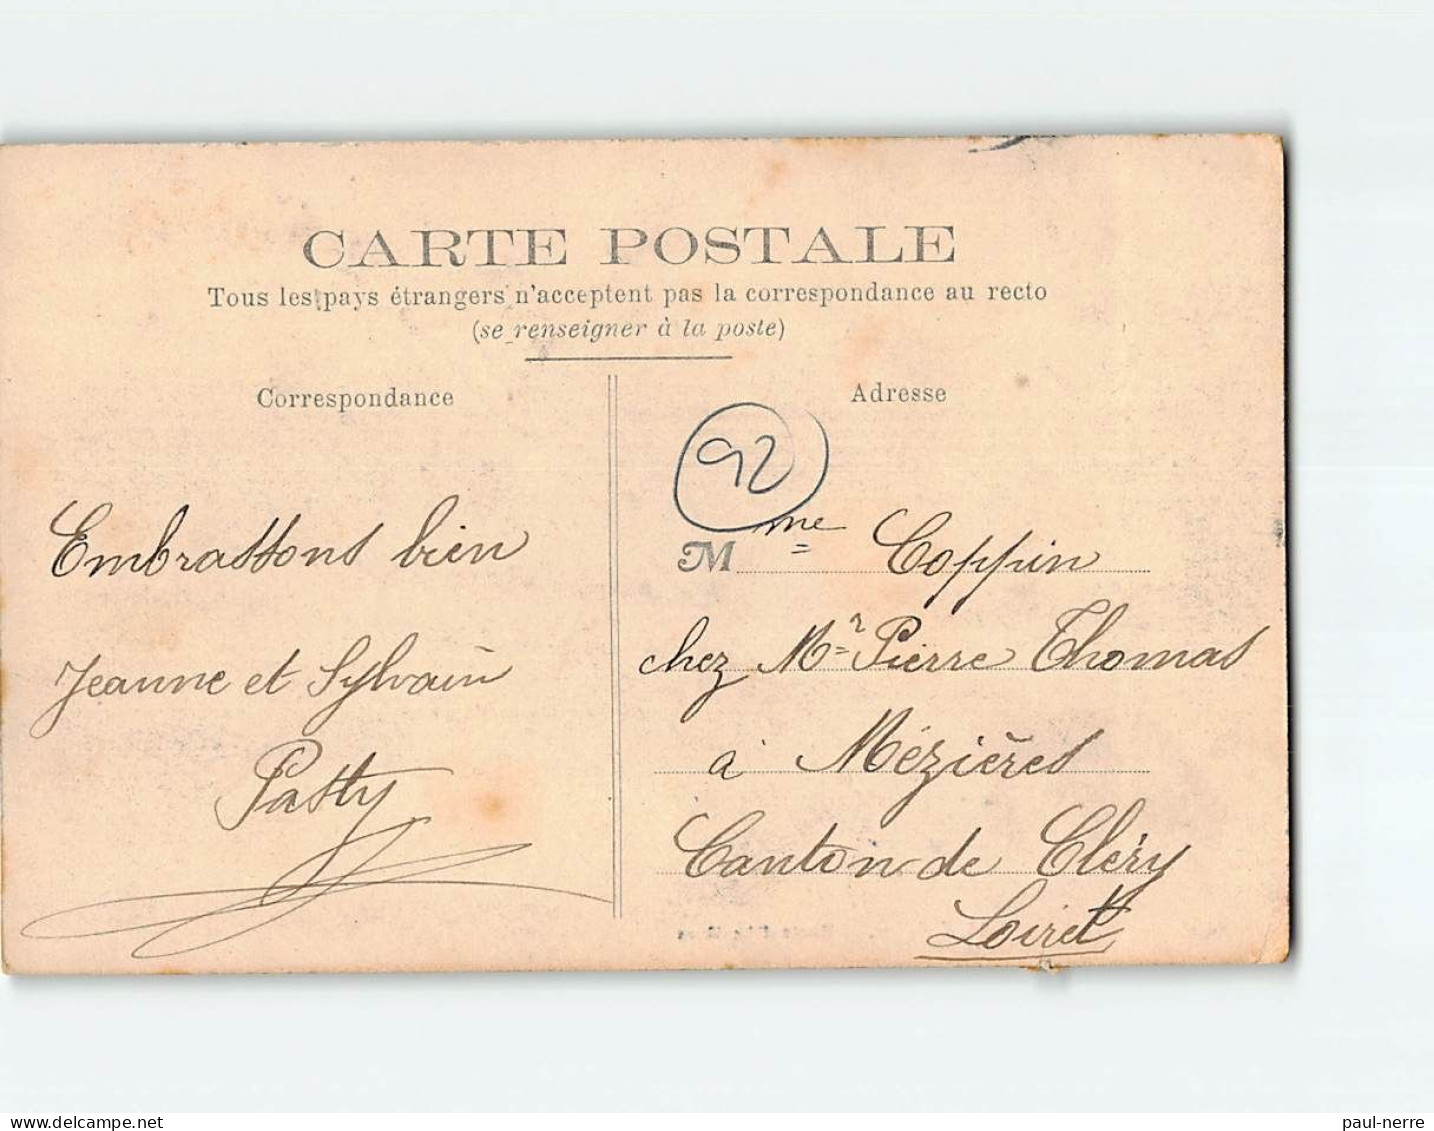 CARTE POSTALE
Tous les pays étrangers n'acceptent pas la correspondance au recto
(se renseigner à la poste)
Correspondance
Embrassons bien
Jeanne et Sylvain
Patty
Adresse
92
Mme Coppin
chez Mr Pierre Thomas
à Mézières
Canton de Cléry
Loiret
delcampe.net
paul-nerre